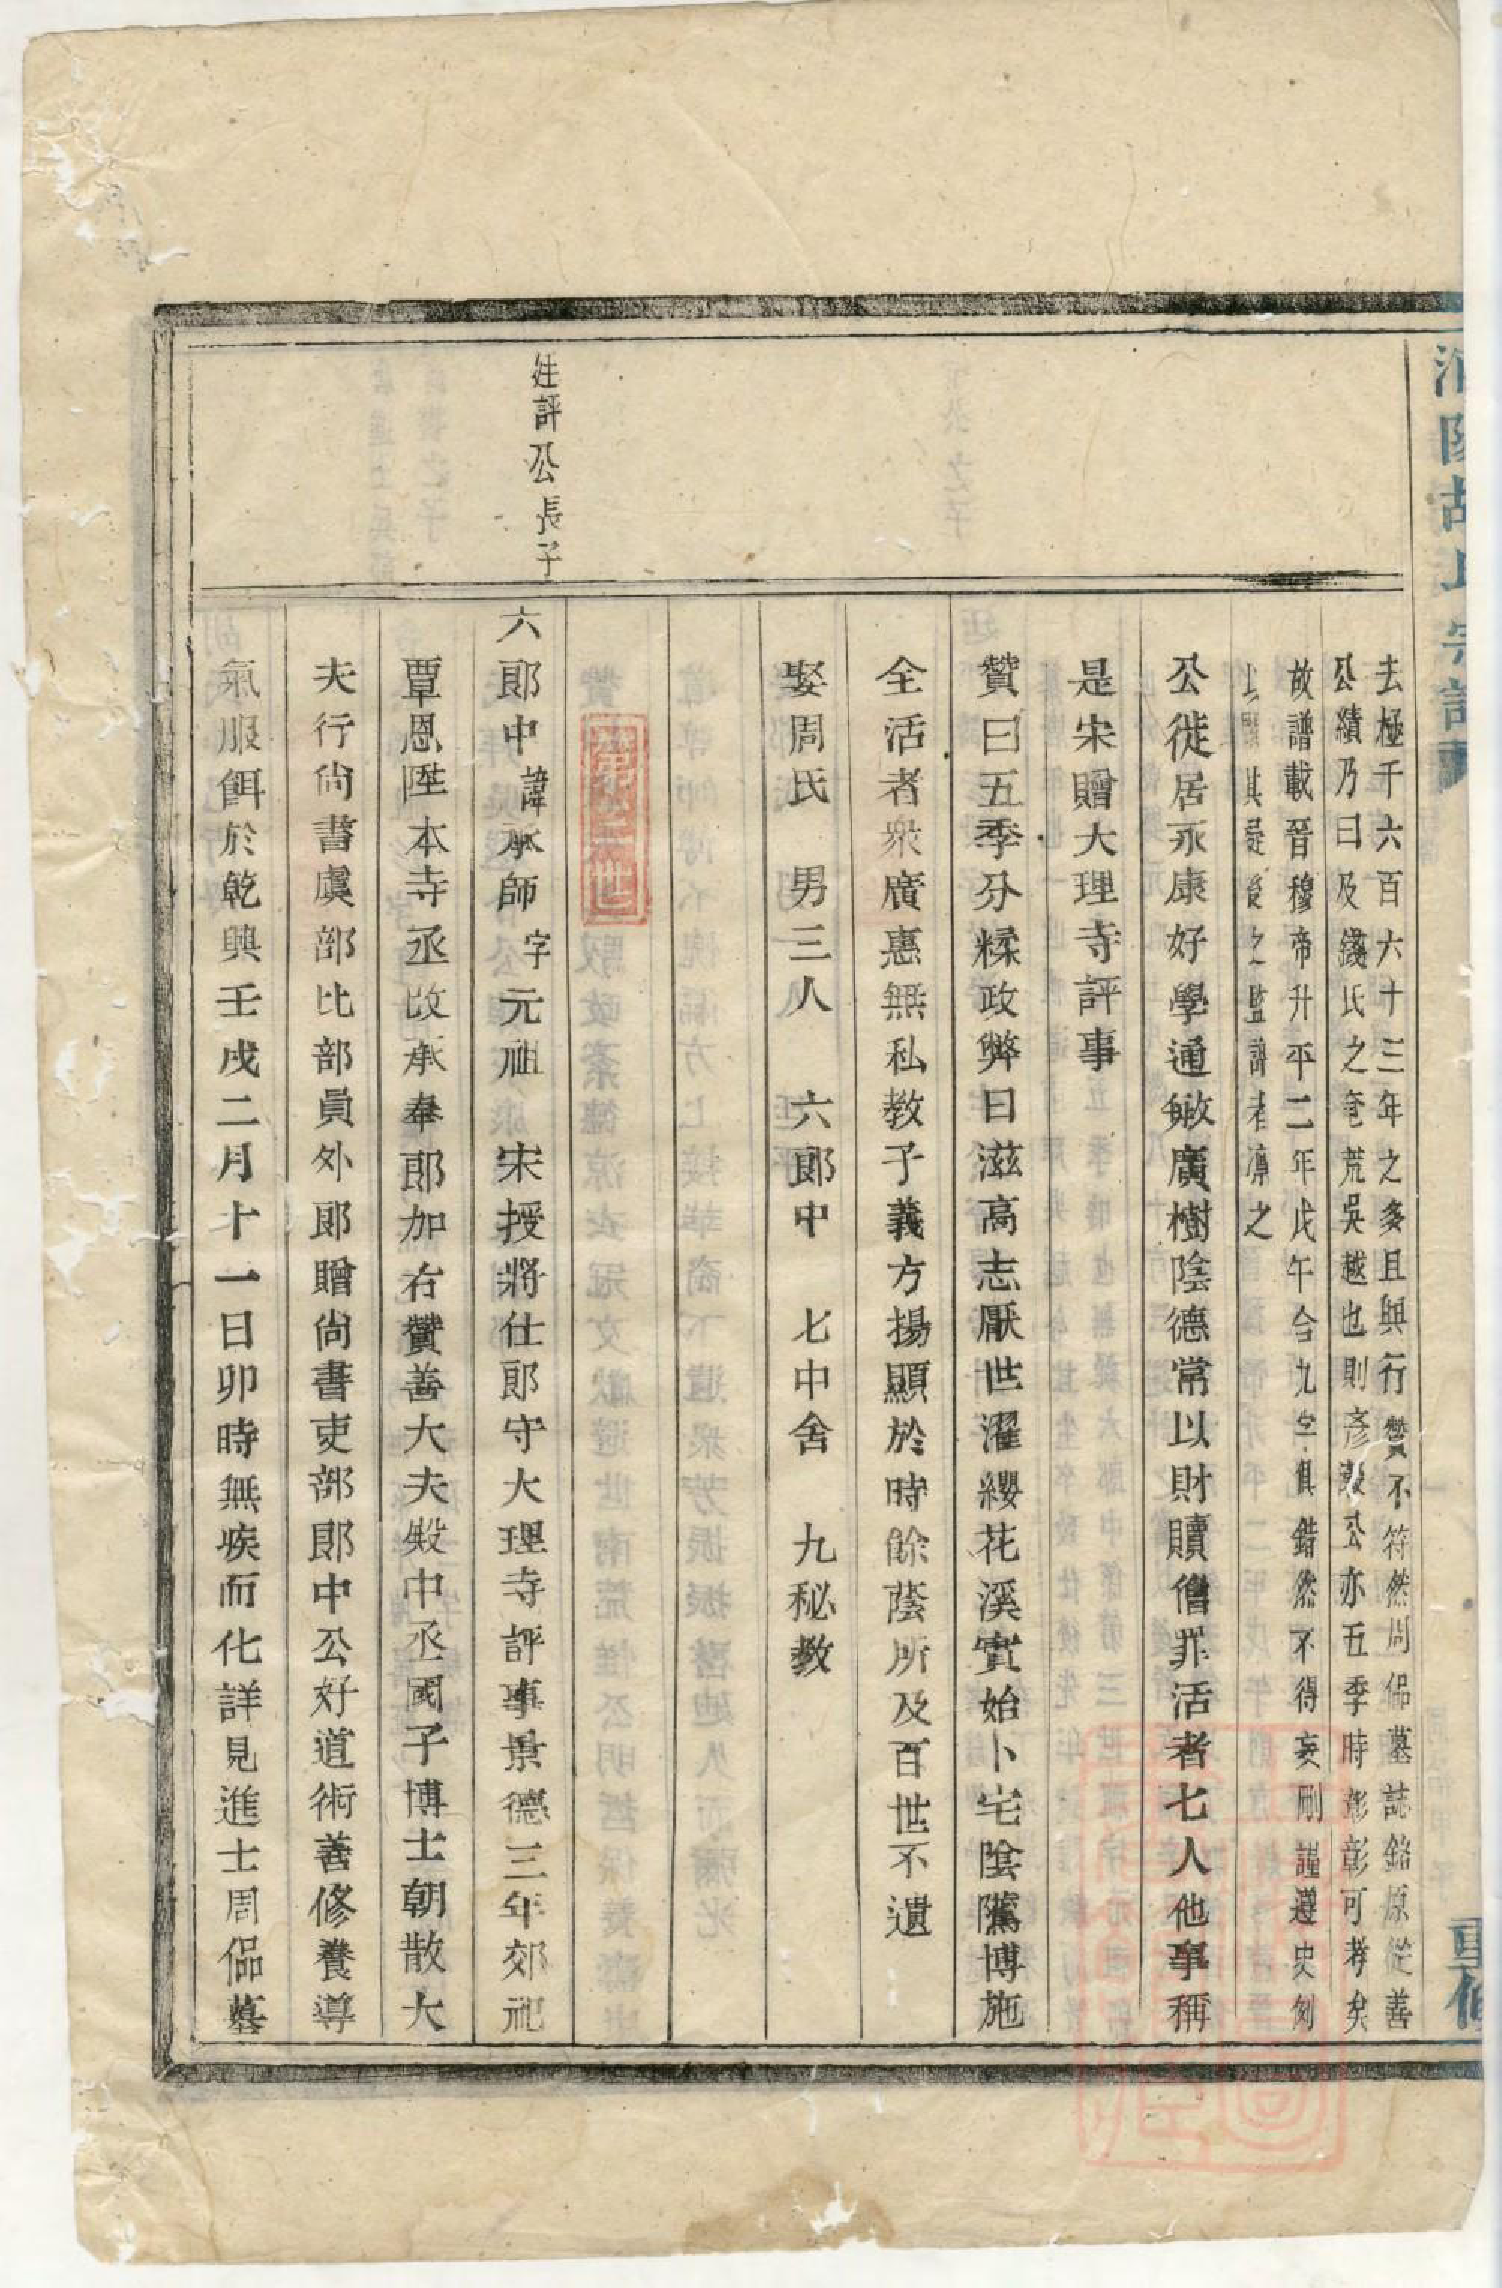 胡氏宗譜
重修
去極千六百六十三年之多且與行贊不符然周佀墓誌銘原從善
公績乃曰及錢氏之奄荒吳越也則彥公亦五季時彰彰可考矣
故譜載晉穆帝升平二年戊午合九字俱錯然不得妄刪謹遵史例
其疑後之監譜者凜之
公徙居永康好學通敏廣樹陰德常以財贖僧罪活者七人他事稱
是宋贈大理寺評事
贊曰五季分糅政弊日滋高志厭世濯纓花溪實始卜宅陰騭博施
全活者衆廣惠無私教子義方揚顯於時餘蔭所及百世不遺
娶周氏 男三人 六郎中 七中舍 九秘教
第三世
廷評公長子
六郎中 諱承師 字元祖 宋授將仕郎守大理寺評事景德三年郊祀
覃恩陞本寺丞改承奉郎加右贊善大夫殿中丞國子博士朝散大
夫行尙書虞部比部員外郎贈尙書吏部郎中公好道術善修養導
氣服餌於乾興壬戌二月十一日卯時無疾而化詳見進士周佀墓